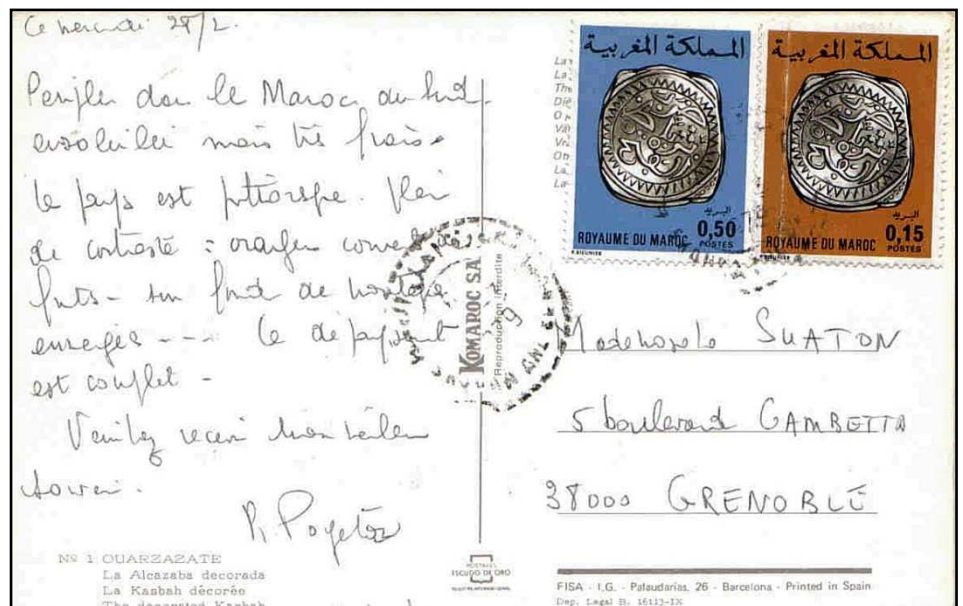 Ce mercredi 28/2.
Periple dans le Maroc du Sud
ensoleillé mais très frais.
le pays est pittoresque. Plein
de contraste : oranges couvertes de
fruits - sur fond de montagnes
enneigées --- Le dépaysement
est complet -
Veuillez recevoir mon meilleur
souvenir.
Nº 1 OUARZAZATE
La Alcazaba decorada
La Kasbah décorée
The decorated Kasbah
KOMAROC SA
Reproduction interdite
POSTALES
ESCUDO DE ORO
المملكة المغربية
البريد
0,50
ROYAUME DU MAROC POSTES
المملكة المغربية
البريد
0,15
ROYAUME DU MAROC POSTES
Mademoiselle SUATON
5 boulevard GAMBETTA
38000 GRENOBLE
FISA - I.G. - Palaudarias, 26 - Barcelona - Printed in Spain
Dep. Legal B. 16113-IX